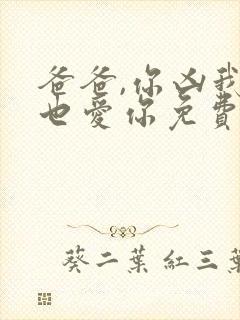 爸爸,你凶我
也愛你免費
葵二葉紅三葉